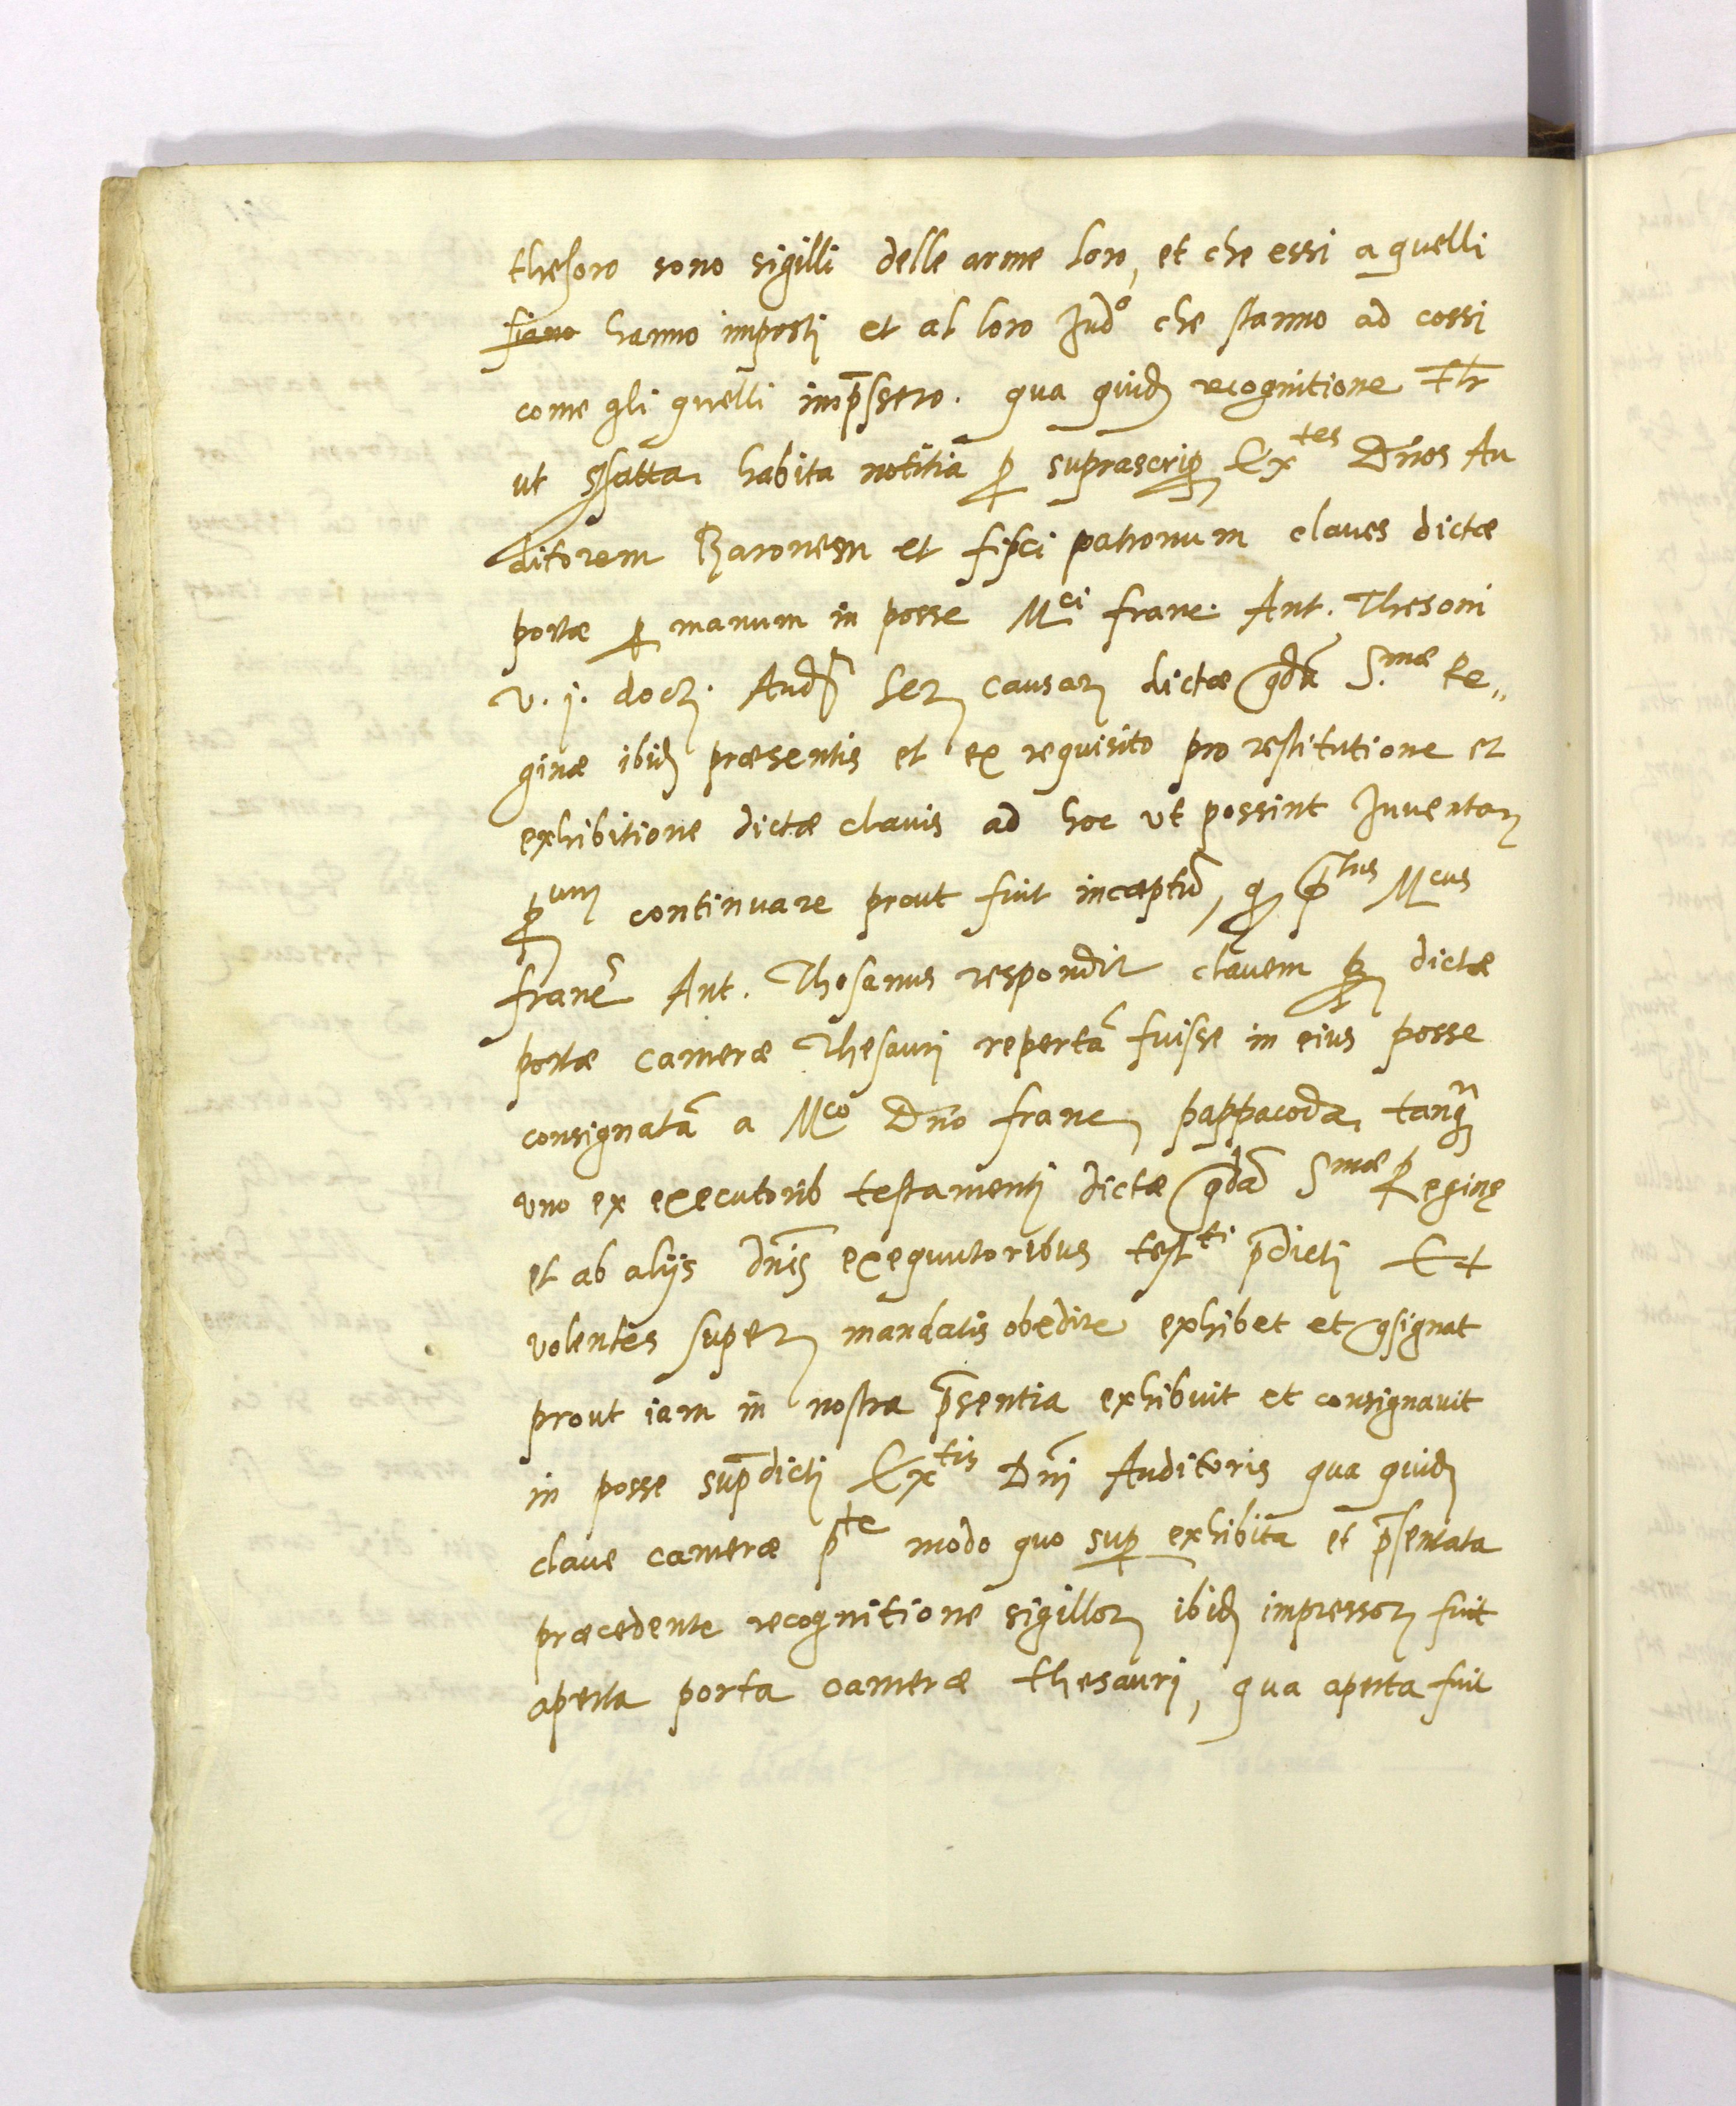 thesoro sono sigilli delle arme loro, et che essi a quelli
siano hanno imposti et al loro Jud° che stanno ad cossi
come gli quelli imp̄ssero. qua quid recognitione
ut habita notitia p suprascrip Ex^tes Dn̄os Au
ditorem Baronem et fisci patronum claves dictæ
portæ p manum in posse M^ci franc. Ant. Thesoni
v. j. doct. Aud causar dictæ qdā S.^mæ Re„
ginæ ibid præsentis et ex requisito pro restitutione et
exhibitione dictæ clavis ad hoc ut possint Inventar
continuare prout fuit inceptū, q p̄^tus M^cus
franc Ant. Thosanus respondit clavem dictæ
portæ cameræ Thesauri repertā fuisse in eius posse
consignatā a M^co Dn̄o franc pappacoda, tanq
uno ex executorib testamenti dictæ qdā S^mæ Reginę
et ab alijs dn̄is exequutoribus test^ti p̄dicti Et
volentes super mandatis obedire exhibet et ꝯsignat
prout iam in nostra p̄sentia exhibuit et consignavit
in posse sup̄dicti Ex^tis Dn̄i Auditoris qua quid
clave cameræ p^te modo quo sup exhibita et p̄sentata
præcedente recognitione sigillor ibid impressor fuit
aperta porta cameræ thesauri, qua aperta fuit